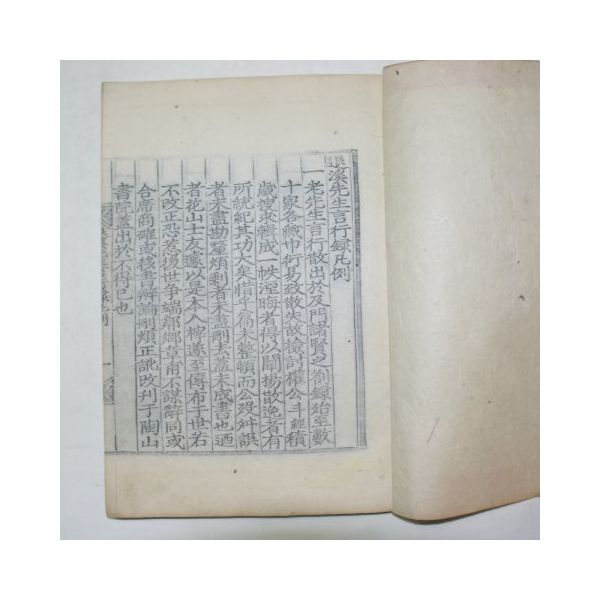 退溪先生言行錄凡例
一老先生言行散出於及門諸賢之劄錄殆至數
十家各藏巾衍易致散失故檢討權公斗經積
歲搜求纔成一帙湮晦者得以闡揚散逸者有
所統紀其功大矣惜乎篇未整頓而公歿舛誤
者未盡勘釐煩剩者未盡刪去蓋未成書也迺
者花山士友遽以是本入梓遂至傳布于世若
不改正恐若後世爭端鄰鄕章甫不謀辭同或
合席商確或移書辨論刪煩正訛改刋于陶山
書院蓋出於不得已也